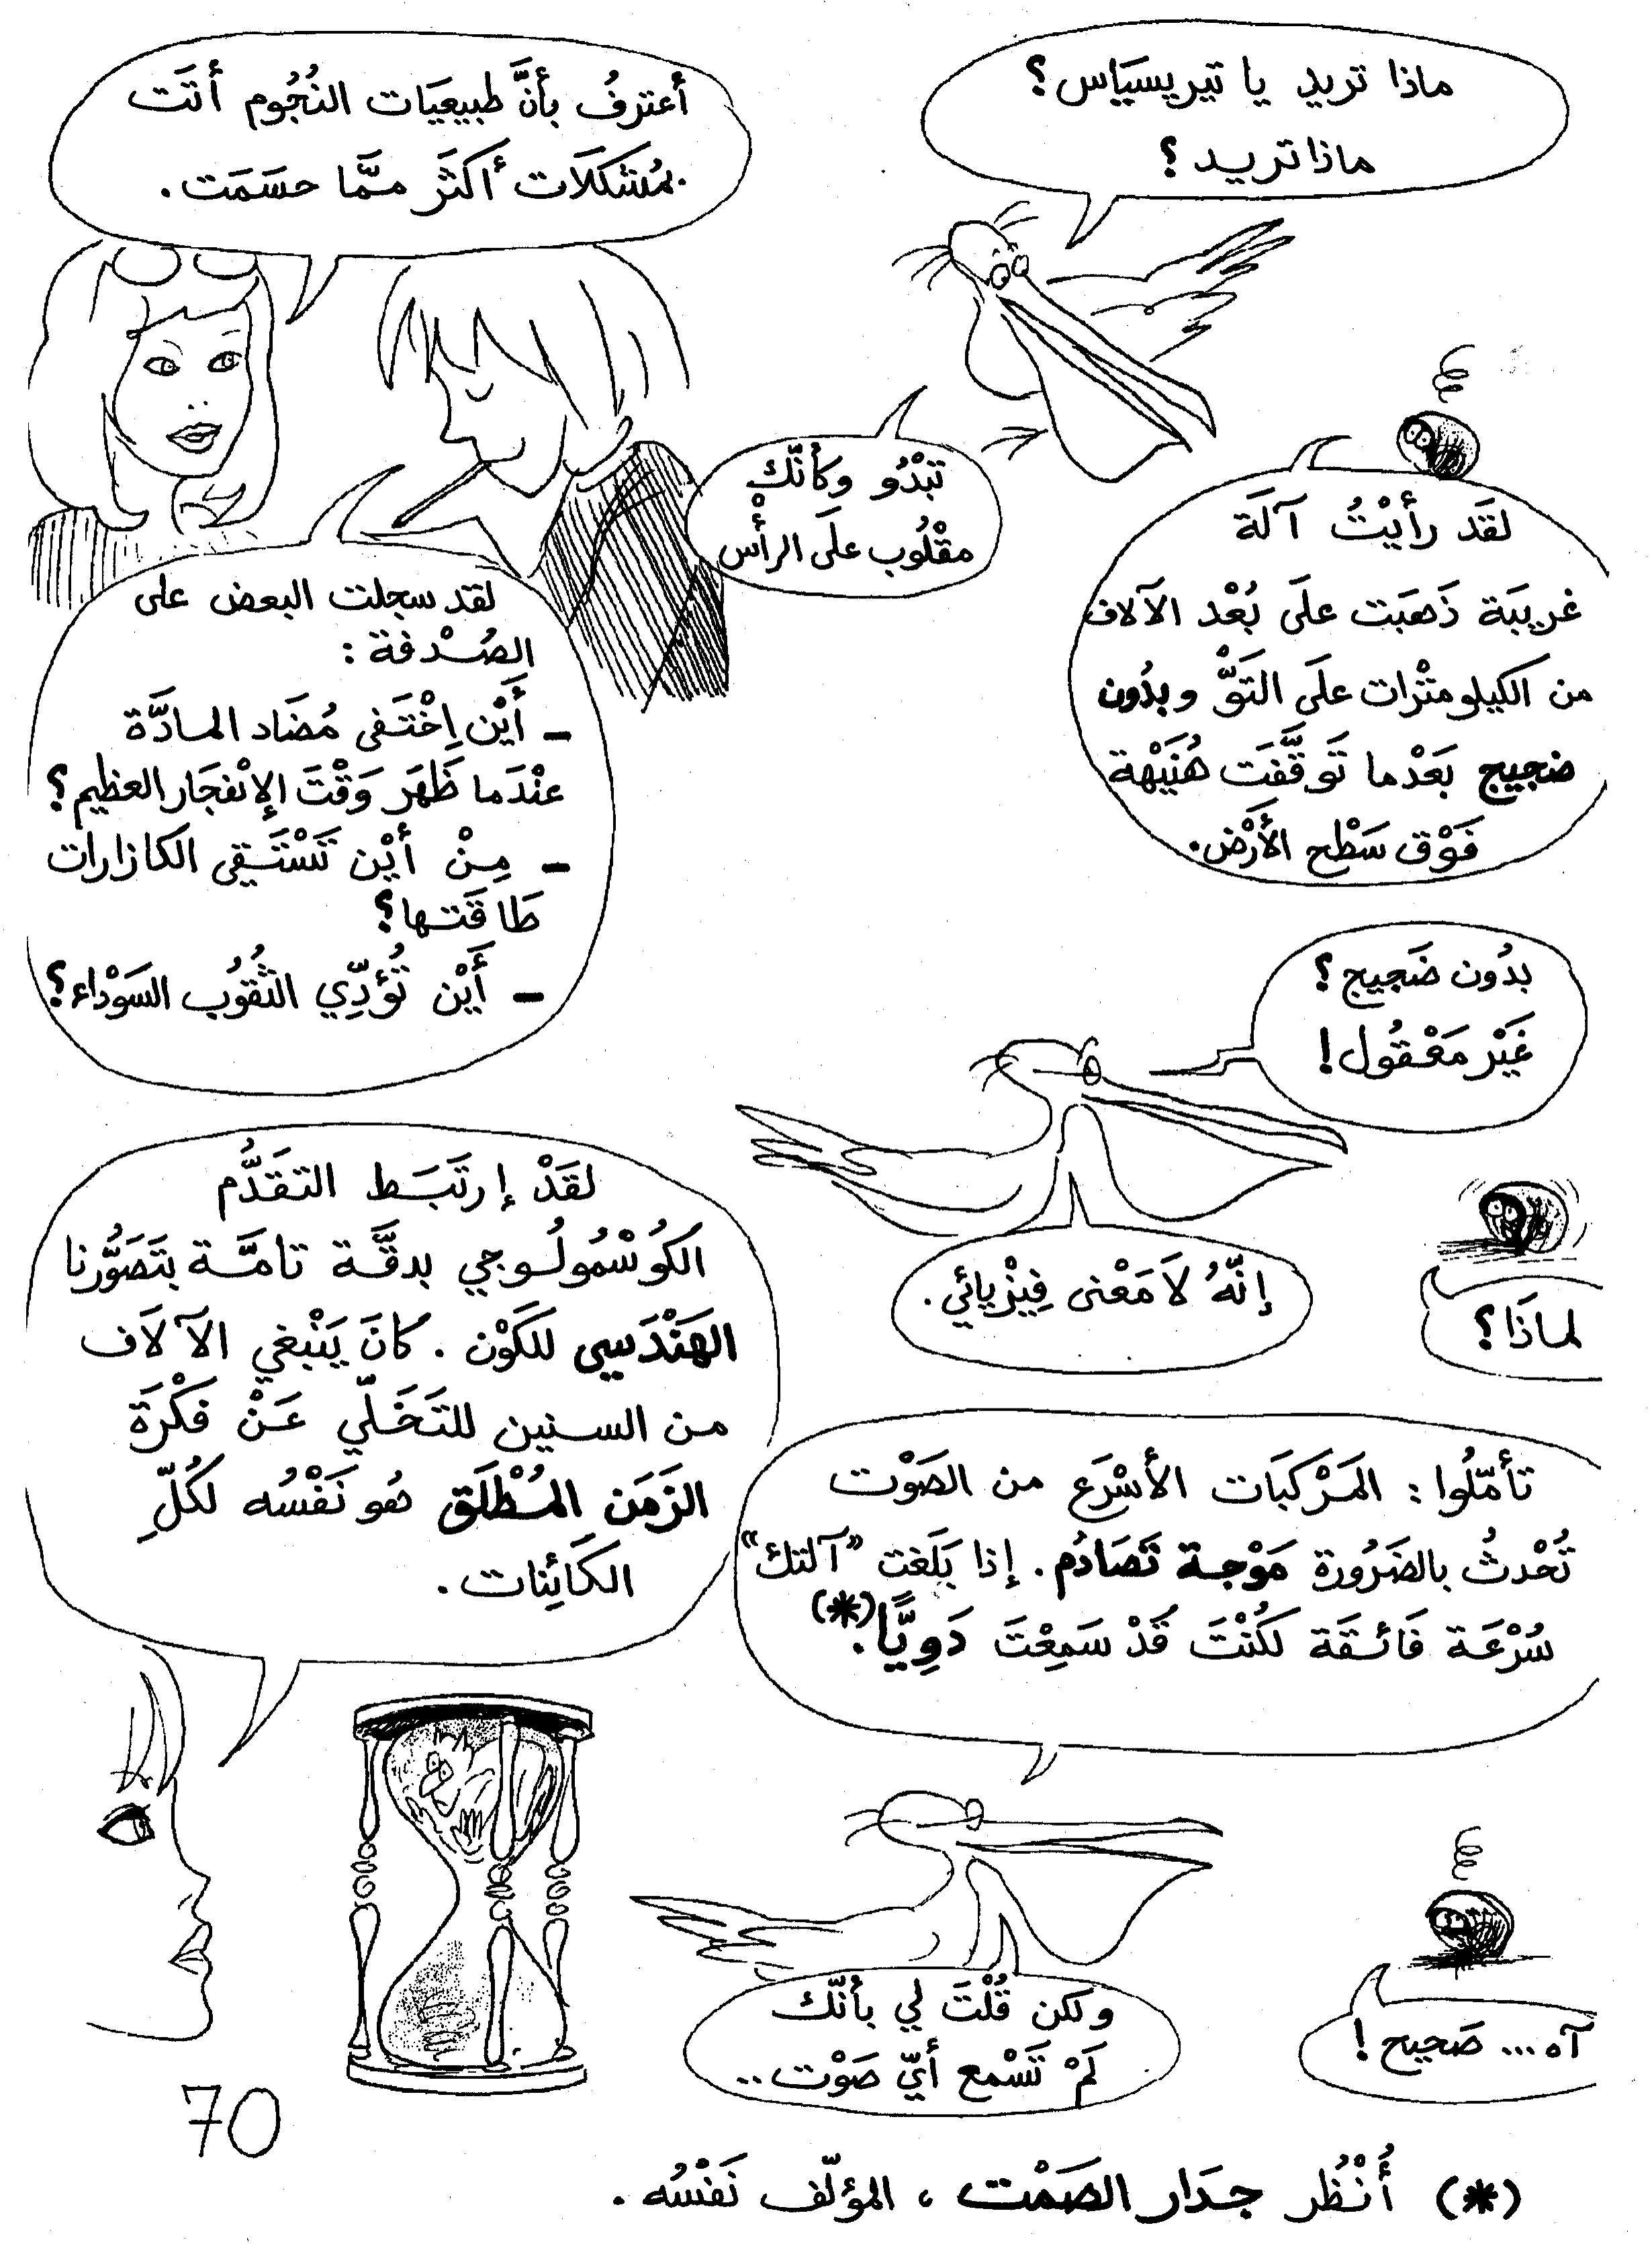 ماذا تريد يا تيريسيَاس؟
ماذا تريد؟
أعترفُ بأنَّ طبيعيَات النُجُوم أتَت
بمُشكلَات أكثَر ممَّا حسَمَت.
تبْدُو وكأنّك
مقْلُوب علَى الرأْس
لقَد رأيْتُ آلَة
غريبَة ذَهبَت علَى بُعْد الآلاف
من الكيلومتْرات علَى التَوّ وبدُون
ضجيج بَعْدما تَوقَّفَت هُنَيْهة
فَوْق سَطْح الأَرْض.
لقد سجلت البعض على
الصُدْفة :
– أَيْن اِخْتَفى مُضَاد المادَّة
عنْدَما ظَهَر وَقْتَ الإنْفجَار العظيم؟
– مِنْ أيْن تَسْتَقي الكازارات
طَاقَتها؟
– أَيْن تُؤدِّي الثُقُوب السَوْداء؟
بدُون ضَجيج؟
غَيْر مَعْقُول!
إنّهُ لاَ مَعْنى فِيزْيائي.
لماذَا؟
لقَدْ إرتَبَط التقَدُّم
الكُوسْمُولُوجي بدقَّة تامَّة بتَصَوُّرنا
الهَنْدَسي للكَوْن. كانَ يَنْبغي الآلاَف
من السنين للتَخَلّي عَنْ فكْرَة
الزَمَن المُطْلَق هُو نَفْسُه لكُلِّ
الكَائِنات.
تأمّلُوا : المَرْكبَات الأسْرَع من الصَوْت
تُحْدثُ بالضَرُورة مَوْجة تَصَادُم. إذا بَلَغت "آلتك"
سُرْعَة فَائقَة لكُنْتَ قَدْ سَمِعْتَ دَوِيًّا.(*)
ولكن قُلْتَ لي بأنّك
لَمْ تَسْمع أيّ صَوْت..
آه... صَحيح!
70
(*) أُنْظُر جدَار الصَمْت ، المؤلّف نَفْسُه.